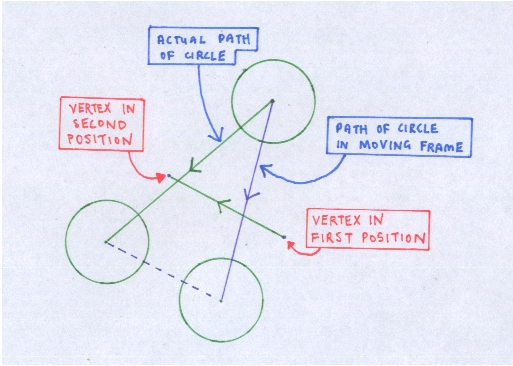 ACTUAL PATH
OF CIRCLE
VERTEX IN
SECOND
POSITION
PATH OF CIRCLE
IN MOVING FRAME
VERTEX IN
FIRST POSITION